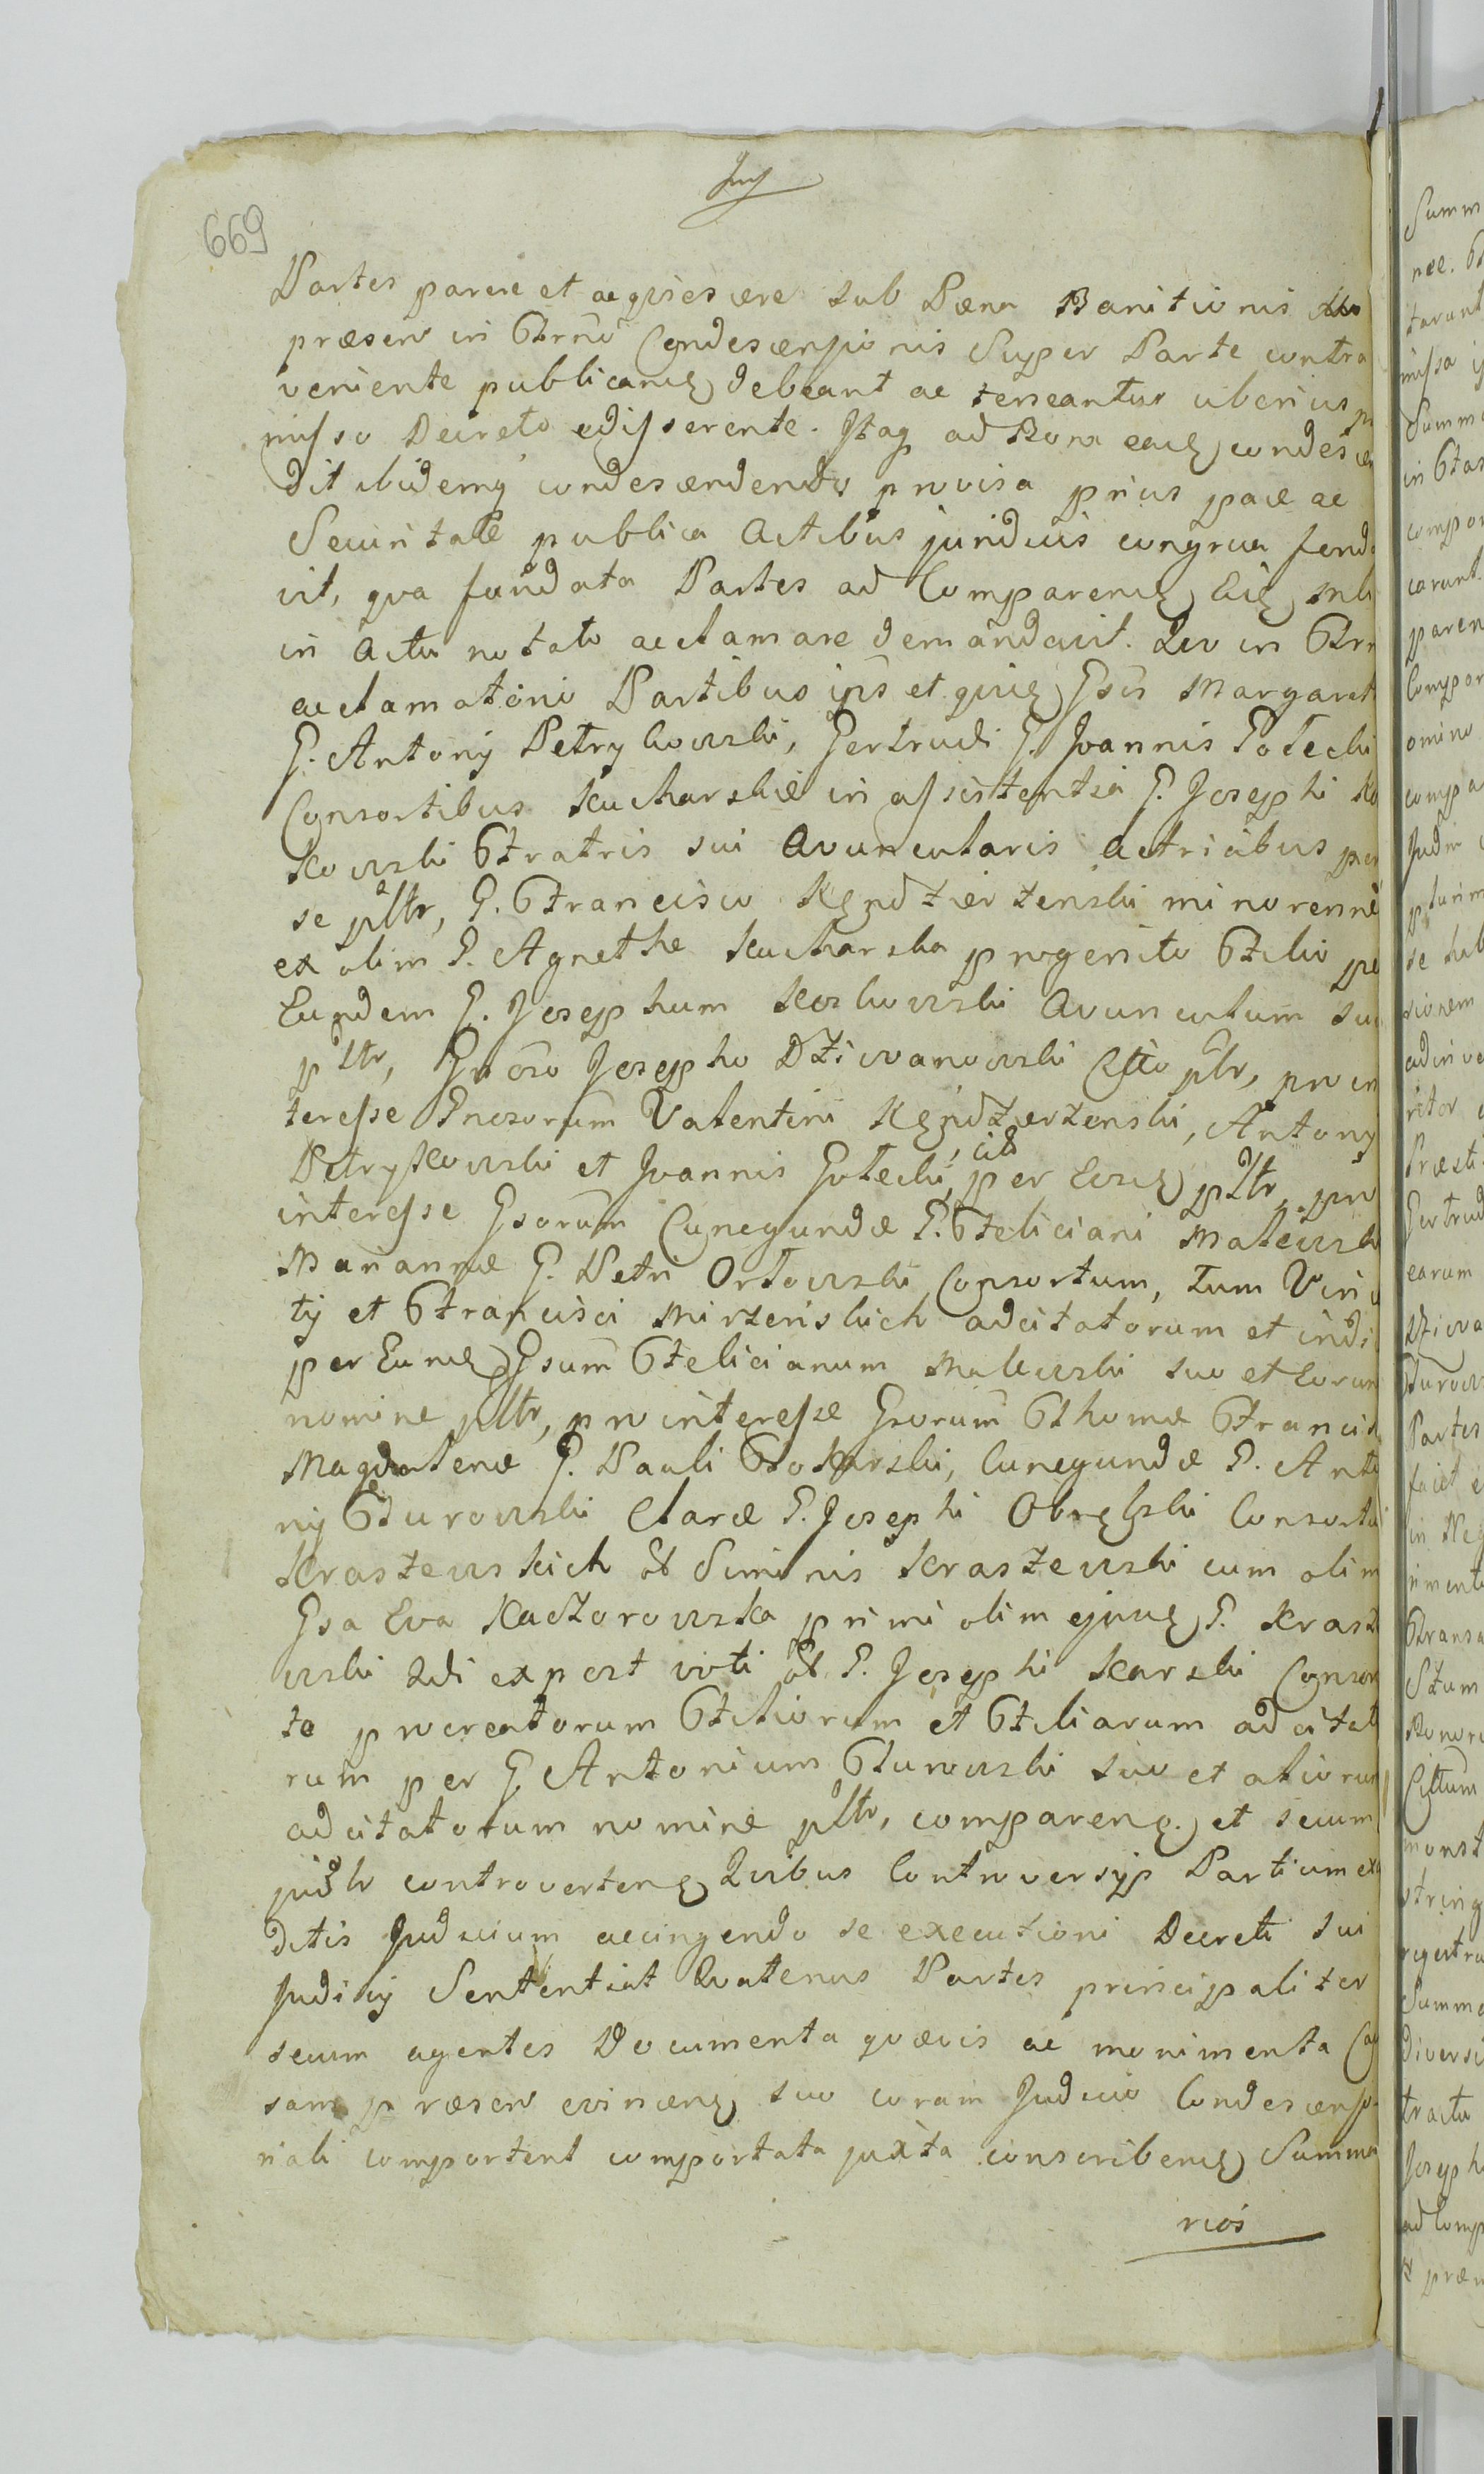 669
Partes parere et acquiescere sub Pæna Banitionis
præsen in Ftrno Condescensionis Super Parte contra
veniente publicanda debeant ac teneantur uberius
misso Decreto edisserente. Itaq ad Bona eadem condescen
dit ibidemq condescendendo provisa prius pace ac
Securitate publica Actibus juridicis congrua funda
vit, qva fundata Partes ad Comparend
in Actu notato acclamare demandavit. Quo in Ftrn
acclamatorio Partibus ips et quid Gsis Margareth
G. Antonij Petrykowski, Gertrudi G. Joannis Gołecki
Consortibus Kucharskie in assistentia G. Josephi Ko
kowski Fratris sui Avuncularis Actricibus per
se pltr, G. Francisco Kędzierzenski minorenni
ex olim G. Agnethe Kucharska progenito Filio pe
Eundem G. Josephum Koskowski Avunculum suu
pltr, Gnoso Josepho Dziwanowski Citto pltr, pro in
teresse Gnosorum Valentini Kędzierzenski, Antonij
Petrykowski et Joannis Gołecki, cit per Eosd pltr, pro
interesse Gsorum Cunegundæ G. Feliciani Malewski
Mariannæ G. Petri Orłowski Consortum, tum Vin
tij et Francisci Mirzenskich adcitatorum et indi
per Eund Gsum Felicianum Malewski suo et Eorum
nomine pltr, pro interesse Gsorum Thomæ Francis
Magdalenæ G. Pauli Tokarski, Cunegundæ G. Anto
nij Turowski Claræ G. Josephi Obrębski Consortu
Kraszewskich et Simonis Kraszewski cum olim
Gsa Eva Kaczorowska primi olim ejusd G. Krasz
wski 2di expost voti et G. Josephi Karski Conson
te procreatorum Filiorum et Filiarum adcitato
rum per G. Antonium Turowski suo et aliorum
adcitatorum nomine pltr, comparen. et secum
judlr controverten Quibus Controversijs Partium exau
ditis Judicium accingendo se executioni Decreti sui
Judicij Sententiat Qvatenus Partes principaliter
secum agentes Documenta qvævis ac monimenta Cau
sam præsen evincen suo coram Judicio Condescenso
riali comportent comportata juxta conscribend Summa
rios